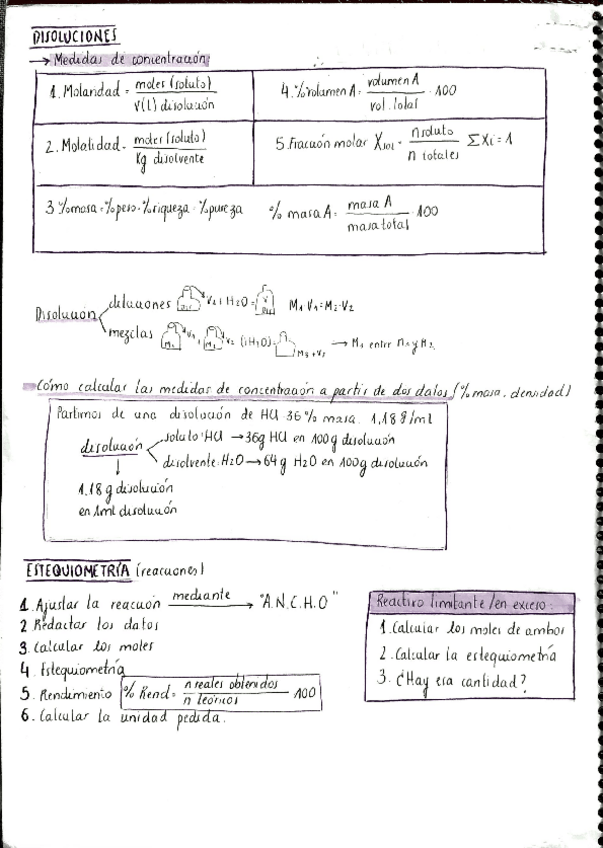 DISOLUCIONES
→ Medidas de concentración
1. Molaridad = moles (soluto) / V(l) disolución
4. % volumen A = volumen A / vol. total · 100
2. Molalidad = moles (soluto) / Kg disolvente
5. Fracción molar Xsol = n soluto / n totales ΣXi = 1
3 %masa = %peso = %riqueza = %pureza % masa A = masa A / masa total · 100
Disolución
diluciones V2 + H2O = M1·V1 = M2·V2
mezclas V1 + V2 (+H2O) = M3 → M3 entre M1 y M2
Cómo calcular las medidas de concentración a partir de dos datos (% masa, densidad)
Partimos de una disolución de HCl 36% masa. 1,18 g/ml
disolución
soluto: HCl → 36g HCl en 100g disolución
disolvente: H2O → 64g H2O en 100g disolución
↓
1,18 g disolución
en 1ml disolución
ESTEQUIOMETRÍA (reacciones)
1 Ajustar la reacción mediante → "A.N.C.H.O"
2 Redactar los datos
3. Calcular los moles
4. Estequiometría
5. Rendimiento % Rend = n reales obtenidos / n teóricos · 100
6. Calcular la unidad pedida.
Reactivo limitante /en exceso:
1. Calcular los moles de ambos
2. Calcular la estequiometría
3. ¿Hay esa cantidad?